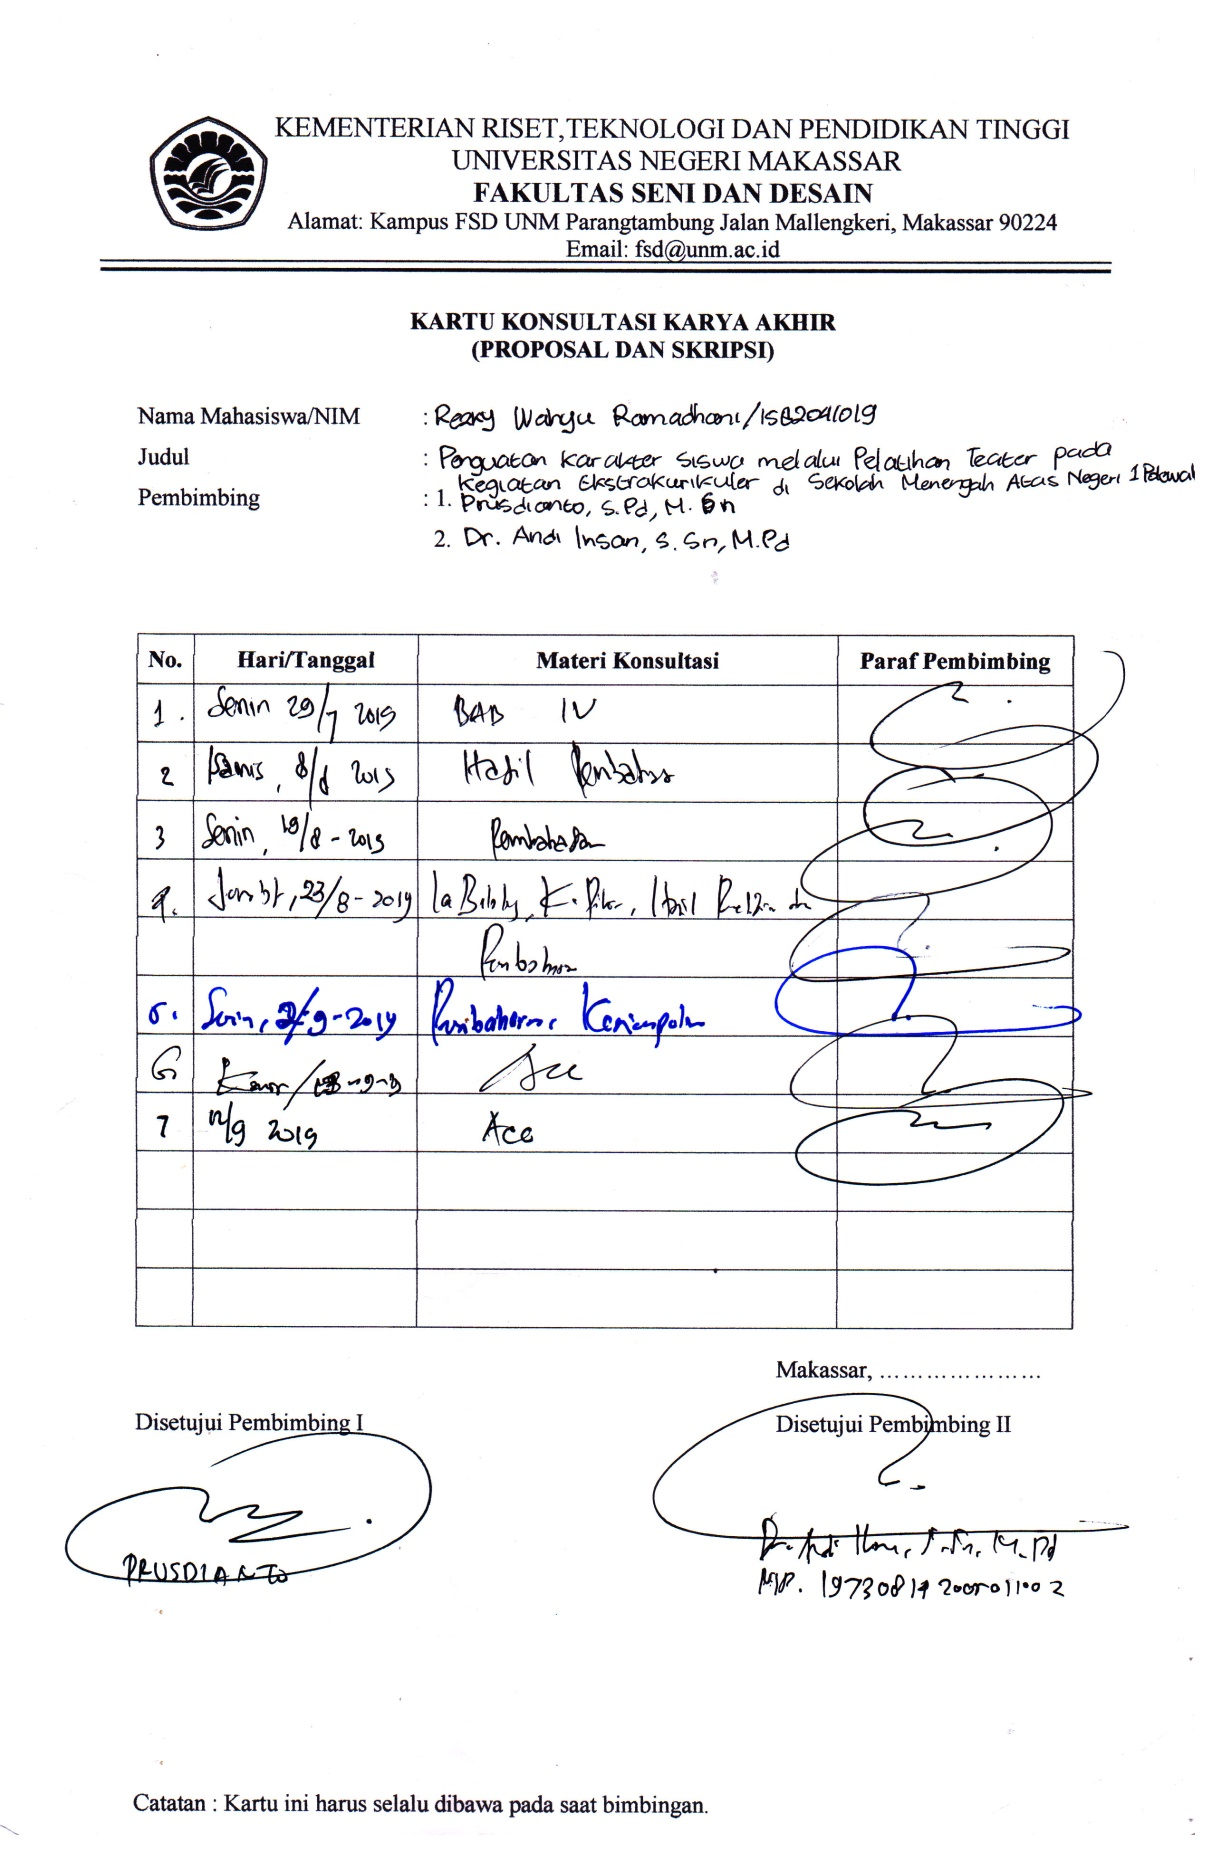 KEMENTERIAN RISET,TEKNOLOGI DAN PENDIDIKAN TINGGI
UNIVERSITAS NEGERI MAKASSAR
FAKULTAS SENI DAN DESAIN
Alamat: Kampus FSD UNM Parangtambung Jalan Mallengkeri, Makassar 90224
Email: fsd@unm.ac.id
KARTU KONSULTASI KARYA AKHIR
(PROPOSAL DAN SKRIPSI)
Nama Mahasiswa/NIM : Wahyu Ramadhani/1582041019
Judul : Penguatan Karakter Siswa melalui Pelatihan Teater pada
Kegiatan Ekstrakurikuler di Sekolah Menengah Atas Negeri 1 Polewali
Pembimbing : 1. Prusdianto, S.Pd, M. Sn
2. Dr. Andi Insan, S. Sn, M.Pd
No. Hari/Tanggal Materi Konsultasi Paraf Pembimbing
1. Senin 29/7 2019 BAB IV
2 Kamis, 8/8 2019 Hasil
3 Senin, 19/8 - 2019 Pembahasan
4. 23/8 - 2019 Hasil
5. Senin, 2/9 - 2019
6 Acc
7 12/9 2019 Acc
Makassar, .....................
Disetujui Pembimbing I Disetujui Pembimbing II
PRUSDIANTO
M.Pd
NIP.
Catatan : Kartu ini harus selalu dibawa pada saat bimbingan.